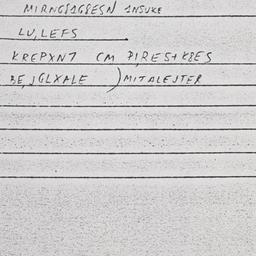 MIRNG81G8ESN 1NSUKE
LU,LEFS
KREPXN7 CM PIRES+K8ES
BE,JGLXALE )MITALEJTER